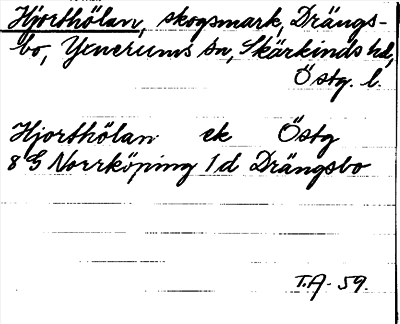 Hjorthölan, skogsmark, Drängs-
bo, Yxnerums sn, Skärkinds hd,
Östg. l.
Hjorthölan ek Östg
8 G Norrköping 1 d Drängsbo
T.A. 59.